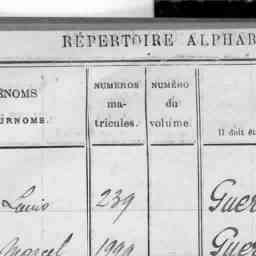 RÉPERTOIRE ALPHAB
ÉNOMS
URNOMS.
NUMÉROS
ma-
tricules.
NUMÉRO
du
volume.
Il doit êt
Louis 239 Guer
Marcel 1999 Guer